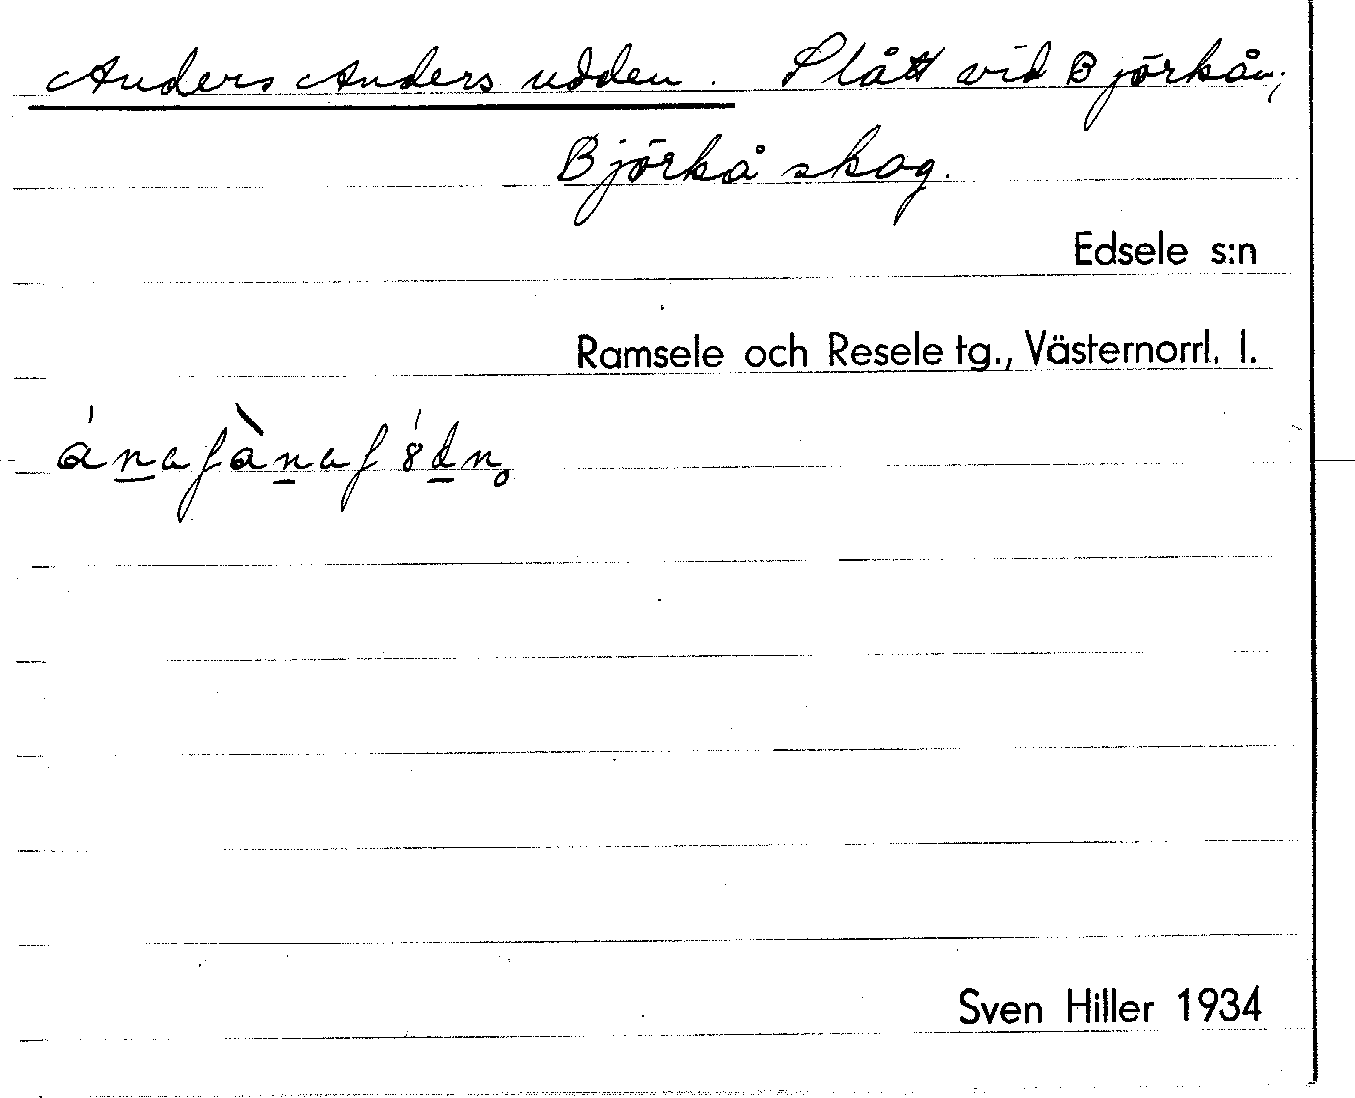 Anders Anders udden. Slått vid Björkån;
Björkå skog.
Edsele s:n
Ramsele och Resele tg., Västernorrl. l.
ánaʃànaʃ 8́dn̥
Sven Hiller 1934